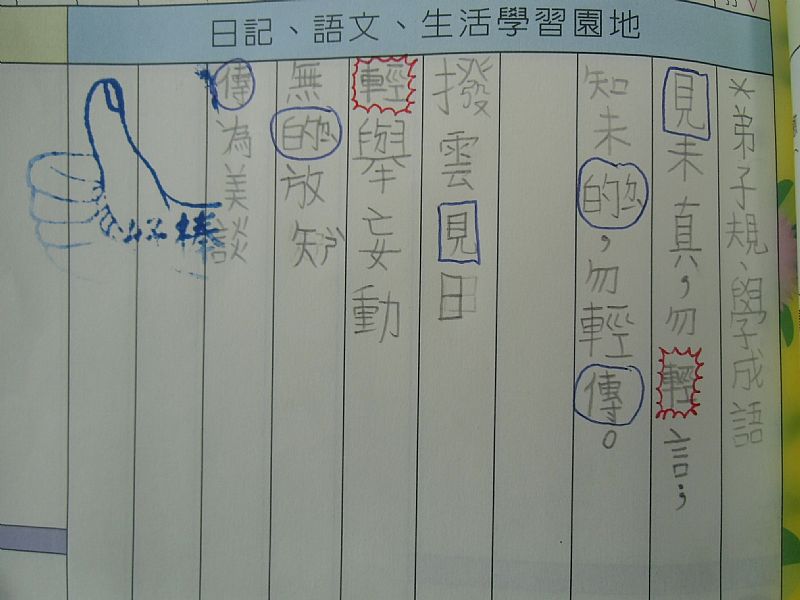 日記、語文、生活學習園地
*弟子規、學成語
見未真，勿輕言；
知未的，勿輕傳。
撥雲見日
輕舉妄動
無的放矢
傳為美談
好棒